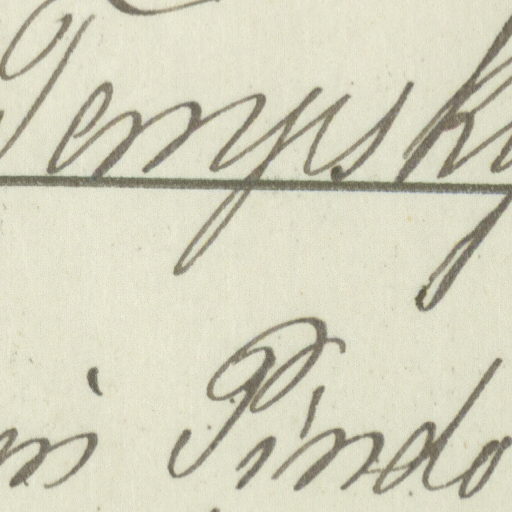 Tempsky
ni Pindo